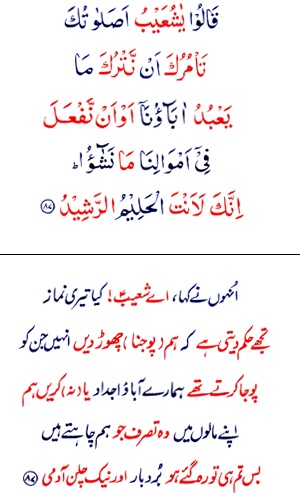 قَالُوْا يٰشُعَيْبُ اَصَلٰوتُكَ
تَاْمُرُكَ اَنْ نَّتْرُكَ مَا
يَعْبُدُ اٰبَآؤُنَاۤ اَوْ اَنْ نَّفْعَلَ
فِيْۤ اَمْوَالِنَا مَا نَشٰٓؤُاؕ
اِنَّكَ لَاَنْتَ الْحَلِيْمُ الرَّشِيْدُ ﴿۸۷﴾
اُنھوں نے کہا، اے شعیبؑ! کیا تیری نماز
تجھے حکم دیتی ہے کہ ہم (پوجنا) چھوڑ دیں انہیں جن کو
پوجا کرتے تھے ہمارے آباؤ اجداد یا (نہ) کریں ہم
اپنے مالوں میں وہ تصرف جو ہم چاہتے ہیں
بس تم ہی تو رہ گئے ہو بُردبار اور نیک چلن آدمی ﴿۸۷﴾